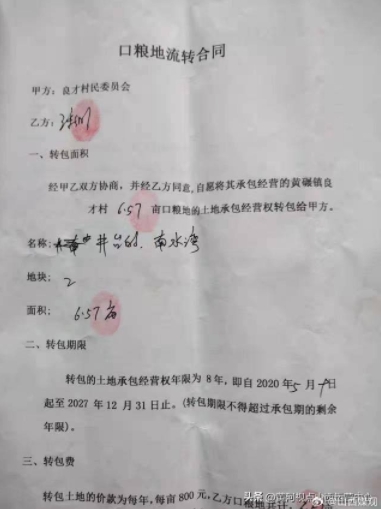 口粮地流转合同
甲方：良才村民委员会
乙方：
一、转包面积
经甲乙双方协商，并经乙方同意,自愿将其承包经营的黄碾镇良
才村 6.57 亩口粮地的土地承包经营权转包给甲方。
名称： 井台的、南水湾
地块： 2
面积： 6.57亩
二、转包期限
转包的土地承包经营权年限为 8 年，即自 2020 年 5 月 日
起至 2027 年 12 月 31 日止。(转包期限不得超过承包期的剩余
年限）。
三、转包费
转包土地的价款为每年，每亩 800 元,乙方口粮地共计
头条